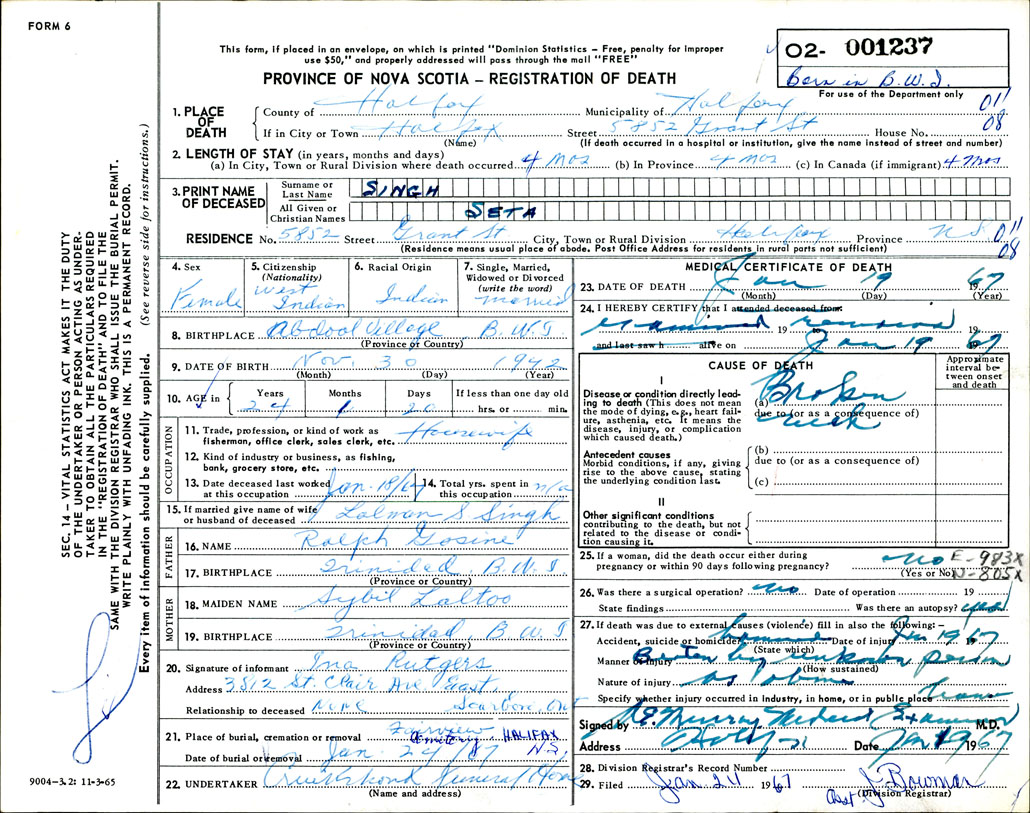 FORM 6
This form, if placed in an envelope, on which is printed "Dominion Statistics – Free, penalty for improper
use $50," and properly addressed will pass through the mail "FREE"
PROVINCE OF NOVA SCOTIA – REGISTRATION OF DEATH
02- 001237
Born in B.W.I.
For use of the Department only
011
08
1. PLACE OF DEATH
County of Halifax Municipality of Halifax
If in City or Town Halifax Street 5852 Grant St House No.
(Name) (If death occurred in a hospital or institution, give the name instead of street and number)
2. LENGTH OF STAY (in years, months and days)
(a) In City, Town or Rural Division where death occurred. 4 mos (b) In Province 4 mos (c) In Canada (if immigrant) 4 mos
3. PRINT NAME OF DECEASED
Surname or Last Name SINGH
All Given or Christian Names SETA
RESIDENCE No. 5852 Street Grant St City, Town or Rural Division Halifax Province N.S.
011
08
(Residence means usual place of abode. Post Office Address for residents in rural parts not sufficient)
4. Sex Female
5. Citizenship (Nationality) West Indian
6. Racial Origin Indian
7. Single, Married, Widowed or Divorced (write the word) married
8. BIRTHPLACE Abdool Village B.W.I.
(Province or Country)
9. DATE OF BIRTH Nov. 30 1942
(Month) (Day) (Year)
10. AGE in Years 24 Months 1 Days 20 If less than one day old hrs. or min.
OCCUPATION
11. Trade, profession, or kind of work as fisherman, office clerk, sales clerk, etc. Housewife
12. Kind of industry or business, as fishing, bank, grocery store, etc.
13. Date deceased last worked at this occupation Jan. 18/67 14. Total yrs. spent in this occupation n/a
15. If married give name of wife or husband of deceased Lalman S Singh
FATHER
16. NAME Ralph Gosine
17. BIRTHPLACE Trinidad, B.W.I
(Province or Country)
MOTHER
18. MAIDEN NAME Sybil Laltoo
19. BIRTHPLACE Trinidad, B.W.I
(Province or Country)
20. Signature of informant Ina Rutgers
Address 3812 St. Clair Ave East,
Relationship to deceased None Scarboro, Ont
21. Place of burial, cremation or removal Fairview Cemetery HALIFAX N.S.
Date of burial or removal Jan. 24 67
22. UNDERTAKER Cruikshank Funeral Home
(Name and address)
MEDICAL CERTIFICATE OF DEATH
23. DATE OF DEATH Jan 19 1967
(Month) (Day) (Year)
24. I HEREBY CERTIFY that I attended deceased from:
examined 19 remains 19
and last saw h alive on Jan 19 1967
CAUSE OF DEATH
Approximate interval between onset and death
I
Disease or condition directly leading to death (This does not mean the mode of dying, e.g., heart failure, asthenia, etc. It means the disease, injury, or complication which caused death.)
(a) Broken neck
due to (or as a consequence of)
Antecedent causes
Morbid conditions, if any, giving rise to the above cause, stating the underlying condition last.
(b)
due to (or as a consequence of)
(c)
II
Other significant conditions contributing to the death, but not related to the disease or condition causing it.
25. If a woman, did the death occur either during pregnancy or within 90 days following pregnancy? no
(Yes or No)
E-983X
N-805X
26. Was there a surgical operation? no Date of operation 19
State findings Was there an autopsy? yes
27. If death was due to external causes (violence) fill in also the following:–
Accident, suicide or homicide Date of injury Jan 19 1967
(State which)
Manner of injury Beaten by unknown person
(How sustained)
Nature of injury as above
Specify whether injury occurred in industry, in home, or in public place home
Signed by Murray Medical Examiner M.D.
Address Date Jan 19 1967
28. Division Registrar's Record Number
29. Filed Jan 24 1967 Asst. J. Bowman
(Division Registrar)
SEC. 14 – VITAL STATISTICS ACT MAKES IT THE DUTY
OF THE UNDERTAKER OR PERSON ACTING AS UNDER-
TAKER TO OBTAIN ALL THE PARTICULARS REQUIRED
IN THE "REGISTRATION OF DEATH" AND TO FILE THE
SAME WITH THE DIVISION REGISTRAR WHO SHALL ISSUE THE BURIAL PERMIT.
WRITE PLAINLY WITH UNFADING INK. THIS IS A PERMANENT RECORD.
Every item of information should be carefully supplied. (See reverse side for instructions.)
9004-3.2: 11-3-65